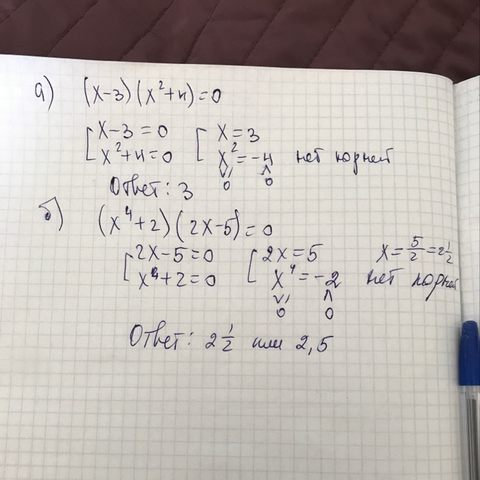 а) (x-3)(x²+4)=0
[x-3=0 [x=3
x²+4=0 x²=-4 нет корней
∨/ ∧
0 0
Ответ: 3
б) (x⁴+2)(2x-5)=0
[2x-5=0 [2x=5 x=5/2=2 1/2
x⁴+2=0 x⁴=-2 нет корней
∨/ ∧
0 0
Ответ: 2 1/2 или 2,5